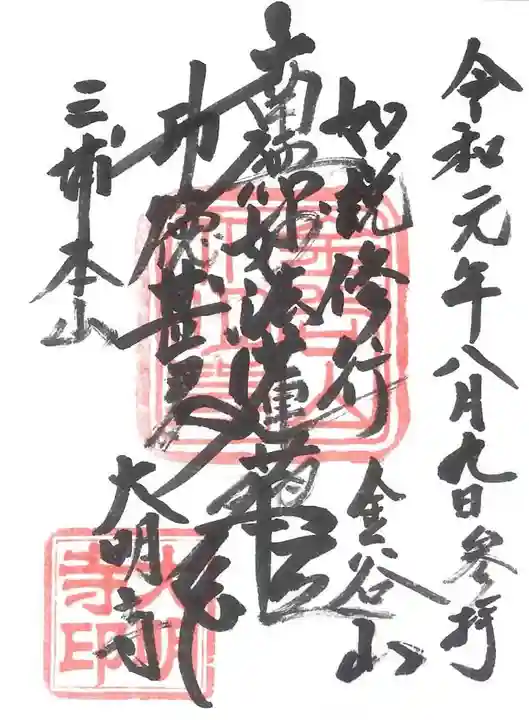 令和元年八月九日参拝
如説修行
金谷山
南無妙法蓮華経
功徳甚多
三浦本山
大明寺
大明寺印